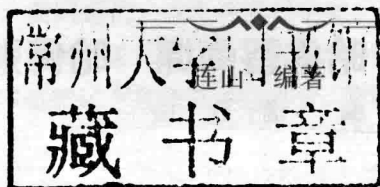 常州大学山书馆
连山 编著
藏书章